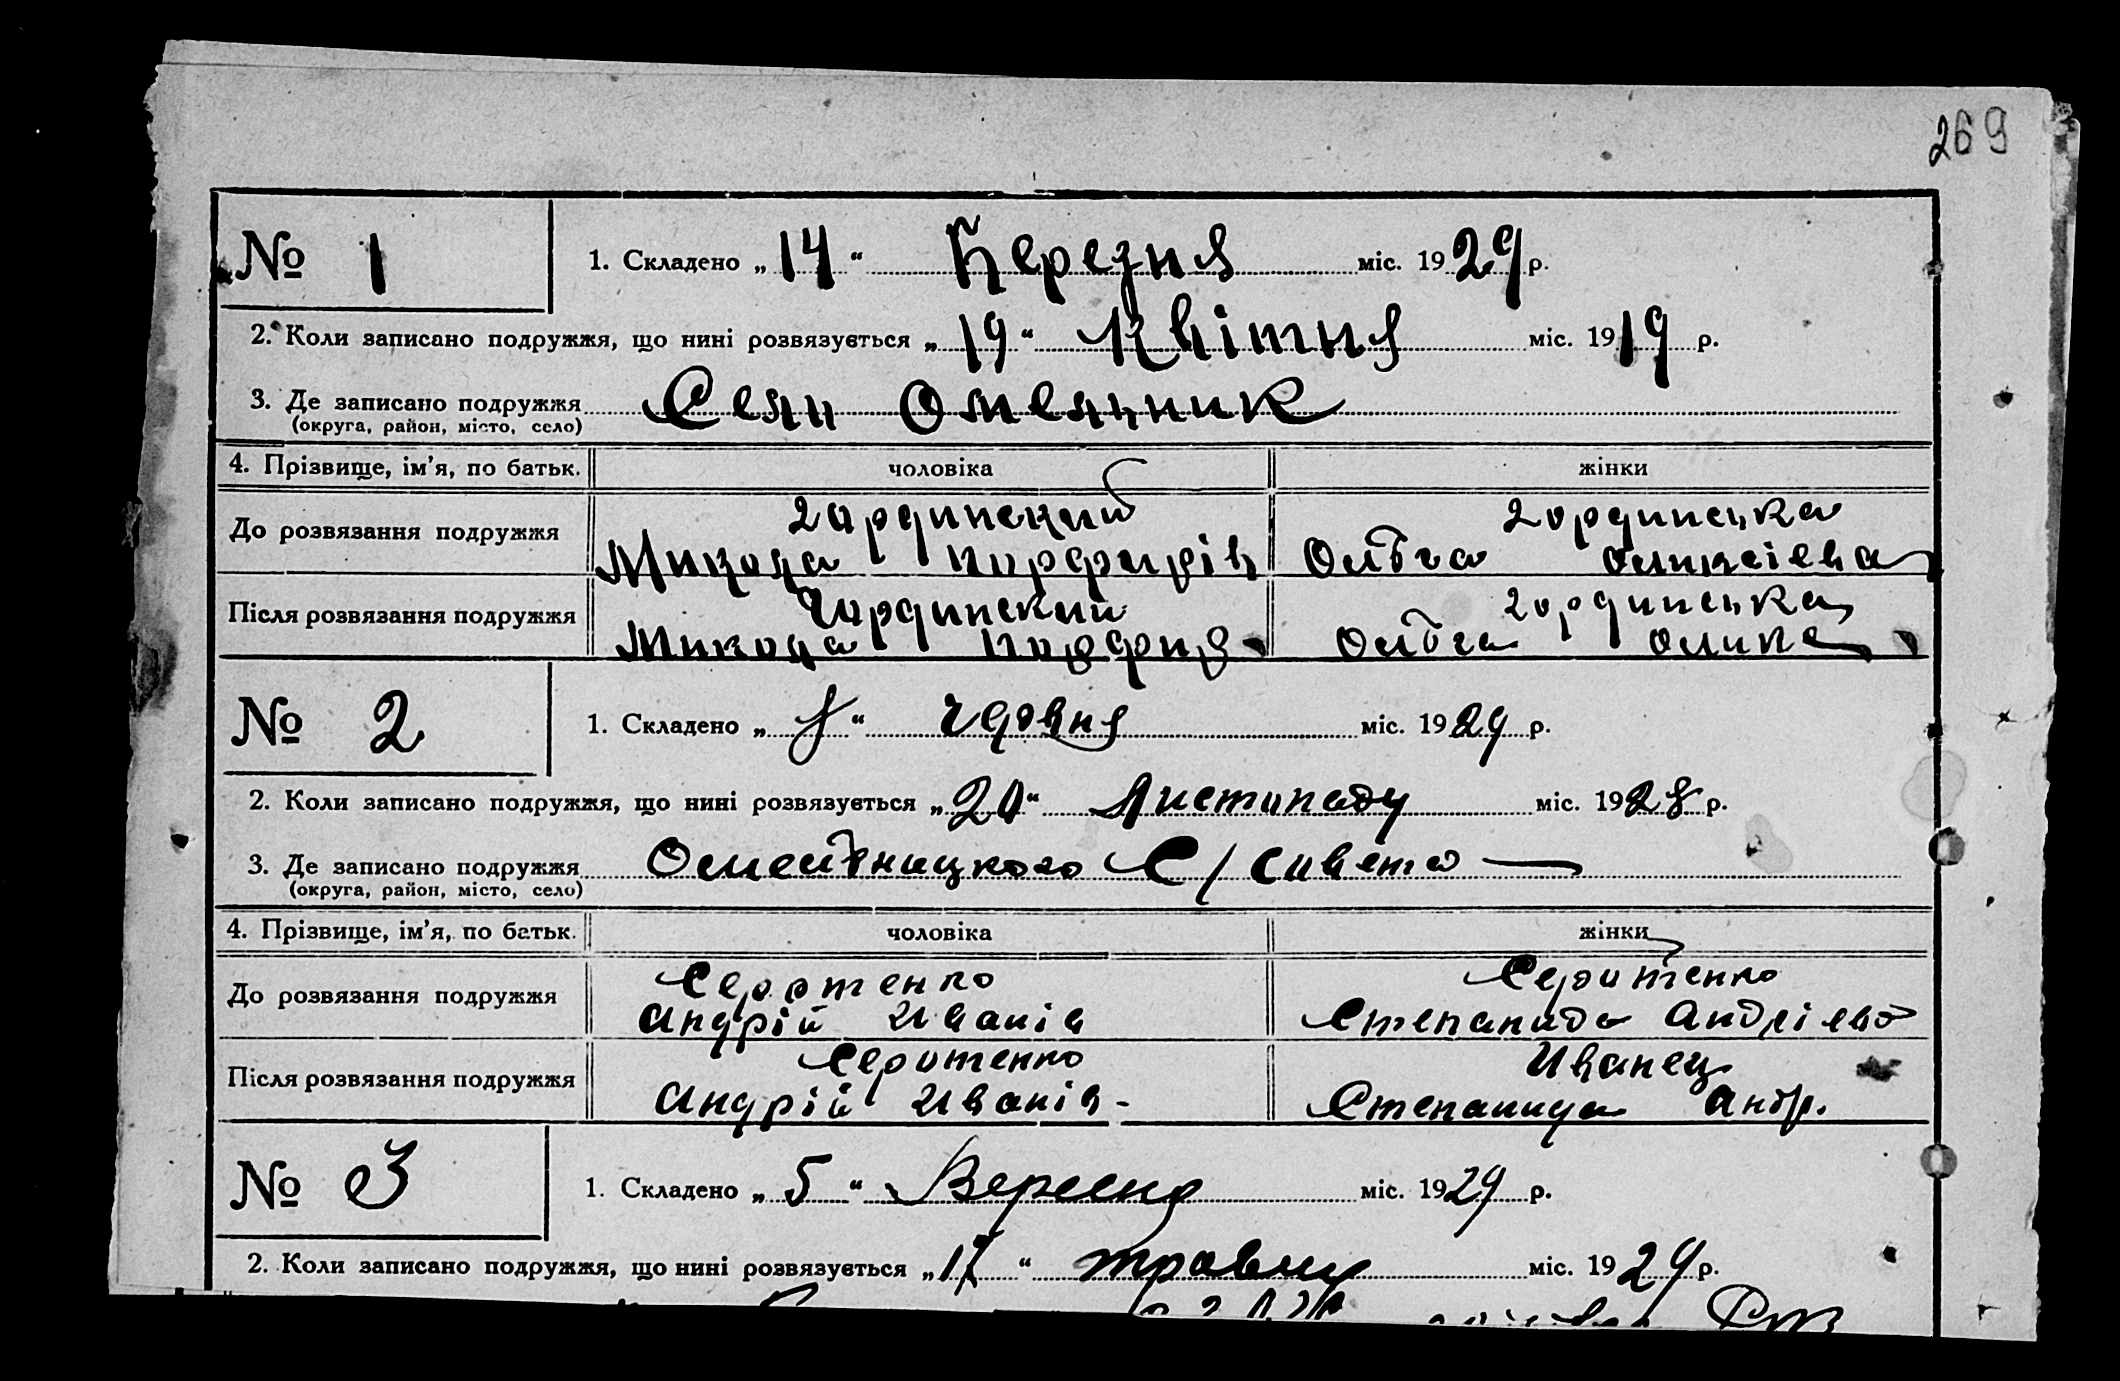 269
№ 1
1. Складено „ 14 “ Березня міс. 1929 р.
2. Коли записано подружжя, що нині розвязується „ 19 “ Квітня міс. 1919 р.
3. Де записано подружжя Село Омельник
(округа, район, місто, село)
4. Прізвище, ім’я, по батьк. чоловіка жінки
До розвязання подружжя
Гординский Гординська
Микола Порфирів Ольга
Після розвязання подружжя
Гординский Гординська
Микола Порфир Ольга
№ 2
1. Складено „ 8 “ червня міс. 1929 р.
2. Коли записано подружжя, що нині розвязується „ 20 “ Листопаду міс. 1928 р.
3. Де записано подружжя Омельницкого С/Совета
(округа, район, місто, село)
4. Прізвище, ім’я, по батьк. чоловіка жінки
До розвязання подружжя
Серотенко Серотенко
Андрій Иванів Степанида Андріева
Після розвязання подружжя
Серотенко Иванец
Андрій Иванів - Степанида Андр.
№ 3
1. Складено „ 5 “ Вересня міс. 1929 р.
2. Коли записано подружжя, що нині розвязується „ 17 “ травня міс. 1929 р.